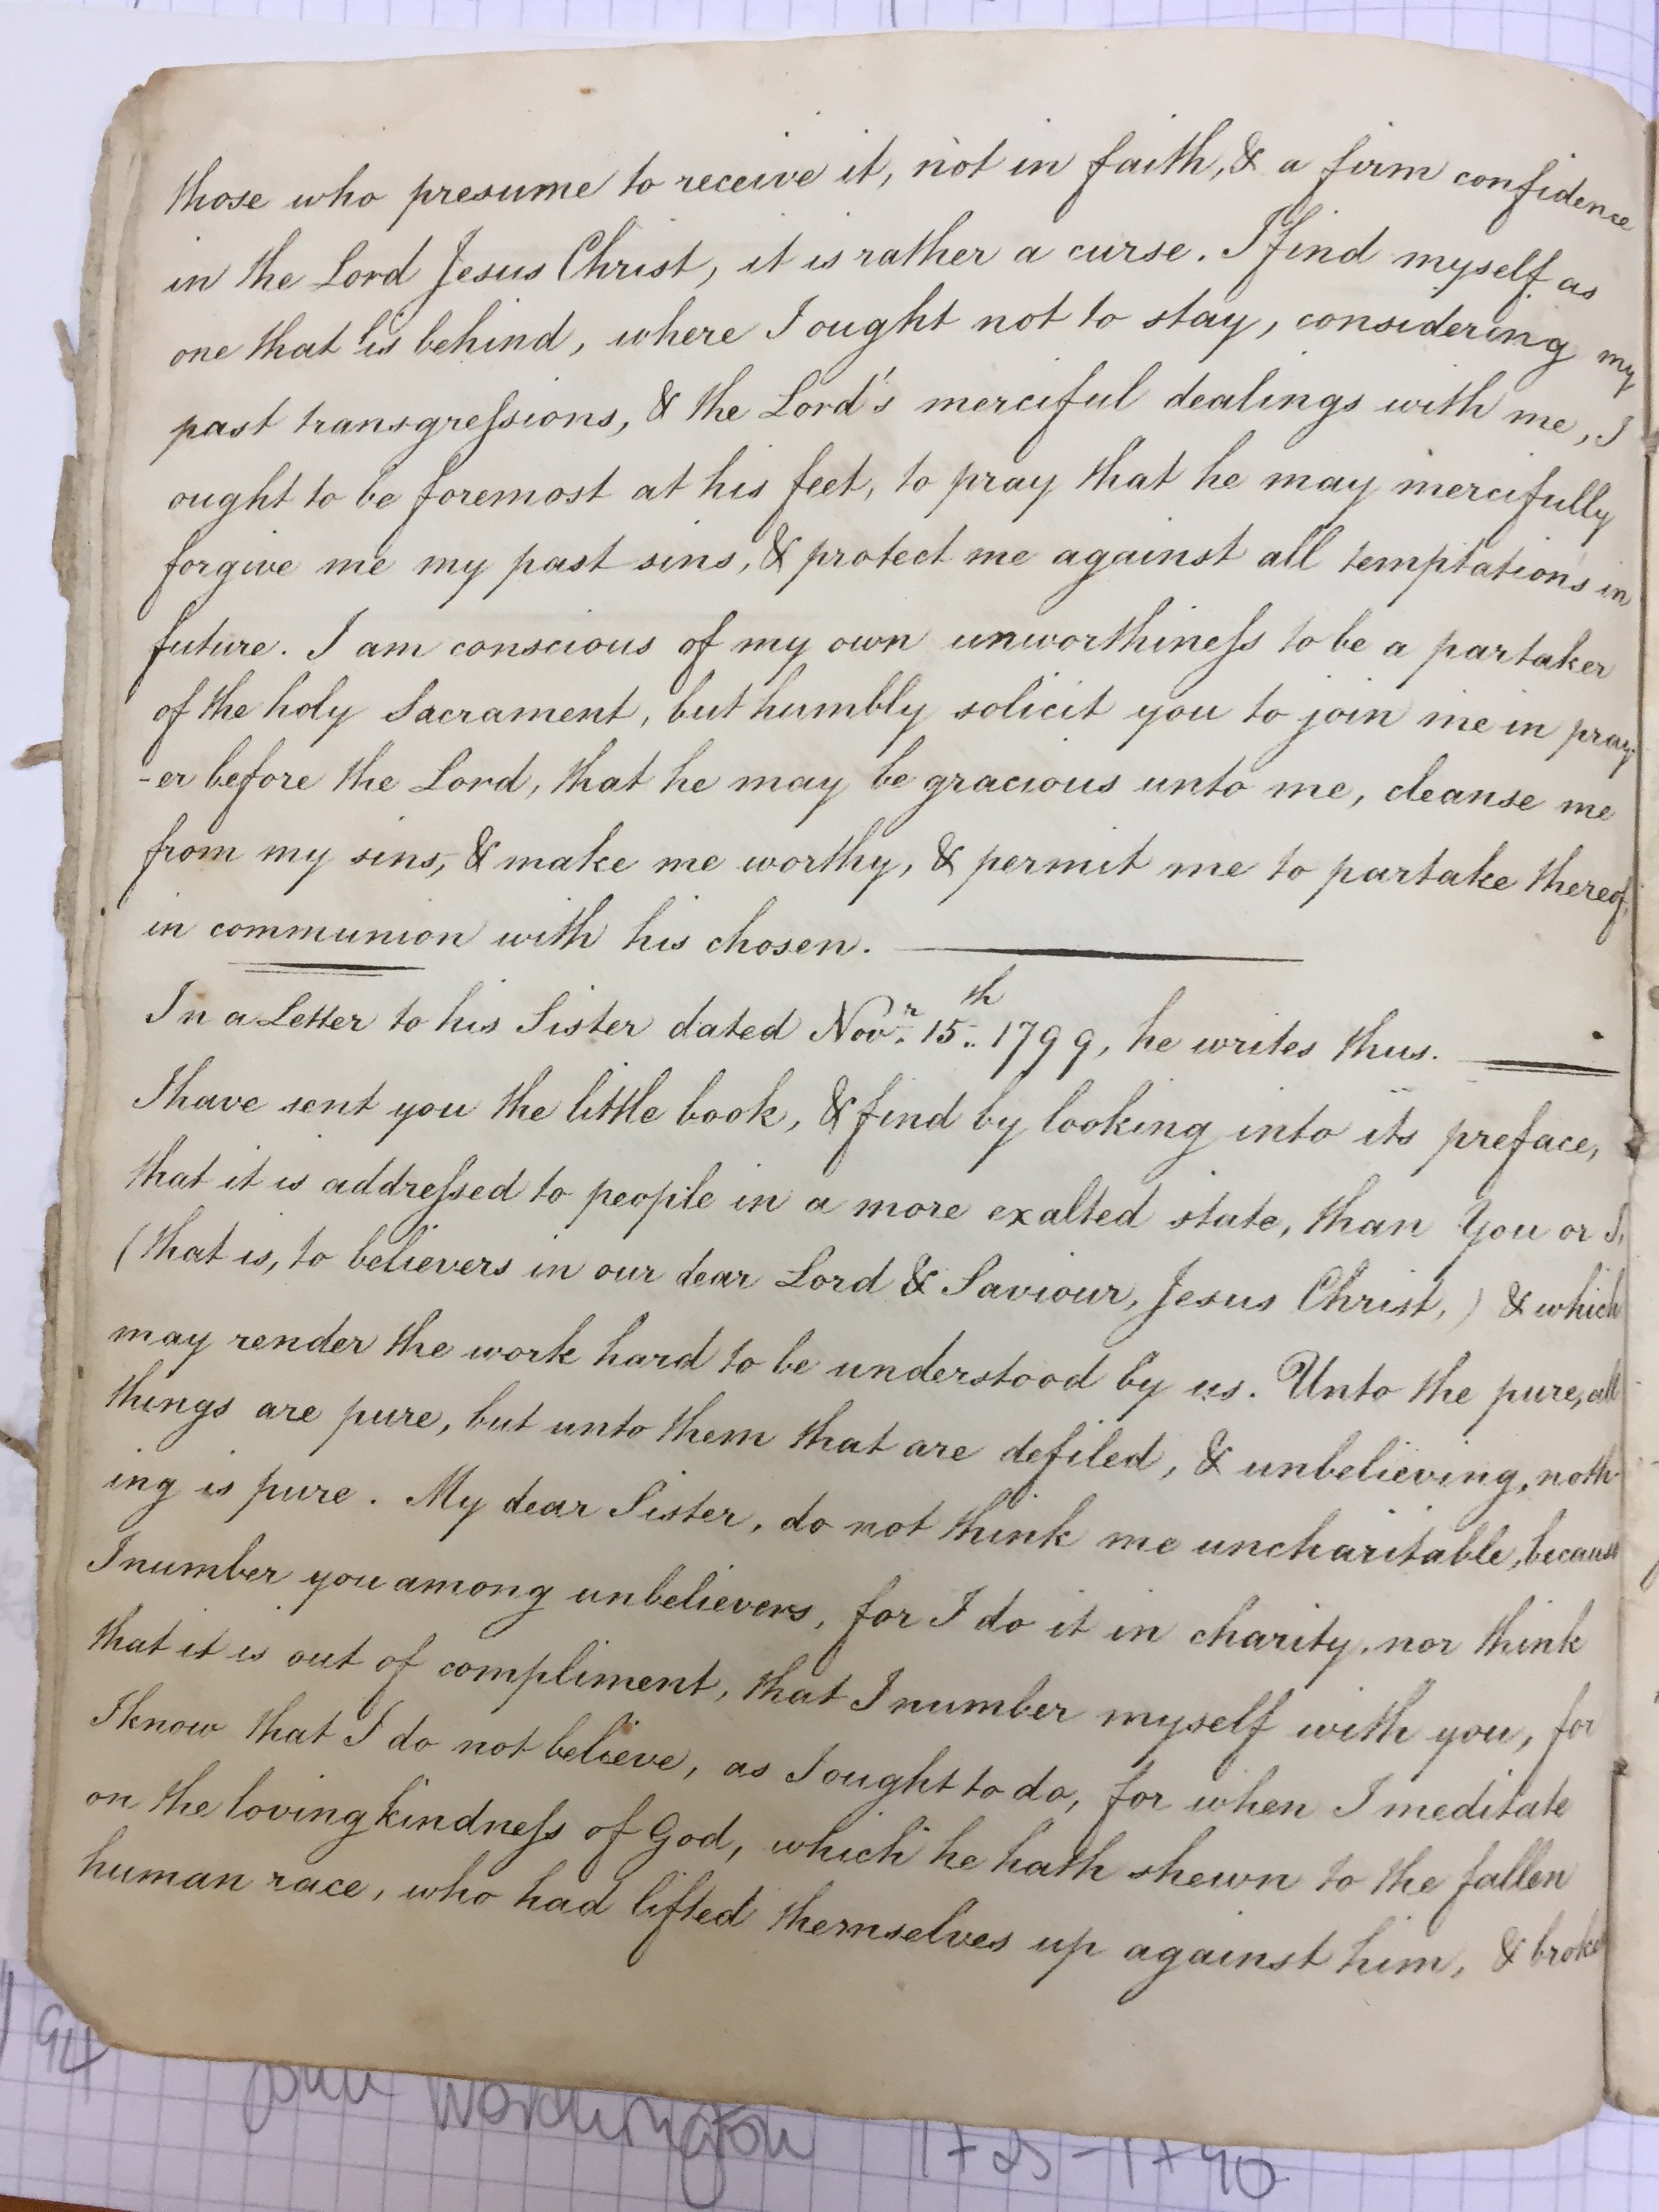 those who presume to receive it, not in faith, & a firm confidence
in the Lord Jesus Christ, it is rather a curse. I find myself as
one that is behind, where I ought not to stay, considering my
past transgreſsions, & the Lord's merciful dealings with me, I
ought to be foremost at his feet, to pray that he may mercifully
forgive me my past sins, & protect me against all temptations in
future. I am conscious of my own unworthineſs to be a partaker
of the holy Sacrament, but humbly solicit you to join me in pray-
-er before the Lord, that he may be gracious unto me, cleanse me
from my sins, & make me worthy, & permit me to partake thereof,
in communion with his chosen.
In a Letter to his Sister dated Novr. 15th. 1799, he writes thus.
I have sent you the little book, & find by looking into its preface,
that it is addreſsed to people in a more exalted state, than You or I,
(that is, to believers in our dear Lord & Saviour, Jesus Christ,) & which
may render the work hard to be understood by us. Unto the pure, all
things are pure, but unto them that are defiled, & unbelieving, noth-
ing is pure. My dear Sister, do not think me uncharitable, because
I number you among unbelievers, for I do it in charity, nor think
that it is out of compliment, that I number myself with you, for
I know that I do not believe, as I ought to do, for when I meditate
on the loving kindneſs of God, which he hath shewn to the fallen
human race, who had lifted themselves up against him, & broke
94
John Worthington 1725-1790